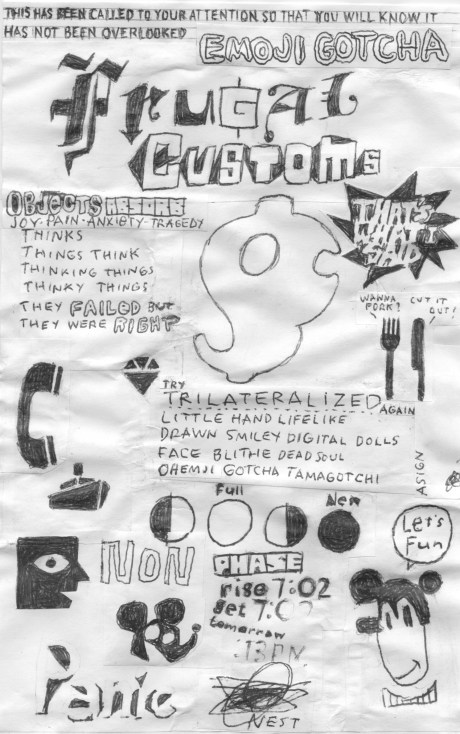 THIS HAS BEEN CALLED TO YOUR ATTENTION SO THAT YOU WILL KNOW IT
HAS NOT BEEN OVERLOOKED
EMOJI GOTCHA
FRUGAL
CUSTOMS
OBJECTS ABSORB
JOY-PAIN-ANXIETY-TRAGEDY
THINKS
THINGS THINK
THINKING THINGS
THINKY THINGS
THEY FAILED BUT
THEY WERE RIGHT
THAT'S
WANNA
PORK?
CUT IT
OUT!
TRY
TRILATERALIZED
AGAIN
LITTLE HAND LIFELIKE
DRAWN SMILEY DIGITAL DOLLS
FACE BLITHE DEAD SOUL
OHEMJI GOTCHA TAMAGOTCHI
ASIGN
Full
New
Let's
Fun
NON
PHASE
rise 7:02
set 7:0
tomorrow
Panic
NEST